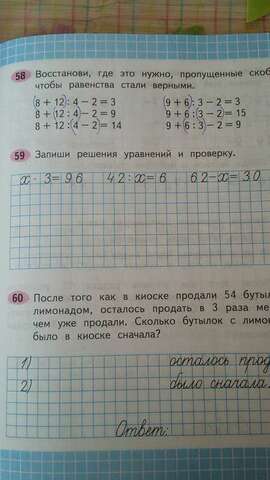 58 Восстанови, где это нужно, пропущенные скоб
чтобы равенства стали верными.
(8 + 12) : 4 − 2 = 3
(9 + 6) : 3 − 2 = 3
8 + (12 : 4) − 2 = 9
9 + 6 : (3 − 2) = 15
8 + 12 : (4 − 2) = 14
9 + (6 : 3) − 2 = 9
59 Запиши решения уравнений и проверку.
x · 3 = 96 42 : x = 6 62 − x = 30
60 После того как в киоске продали 54 буты
лимонадом, осталось продать в 3 раза ме
чем уже продали. Сколько бутылок с лимон
было в киоске сначала?
1) осталось прод
2) было сначала.
Ответ: